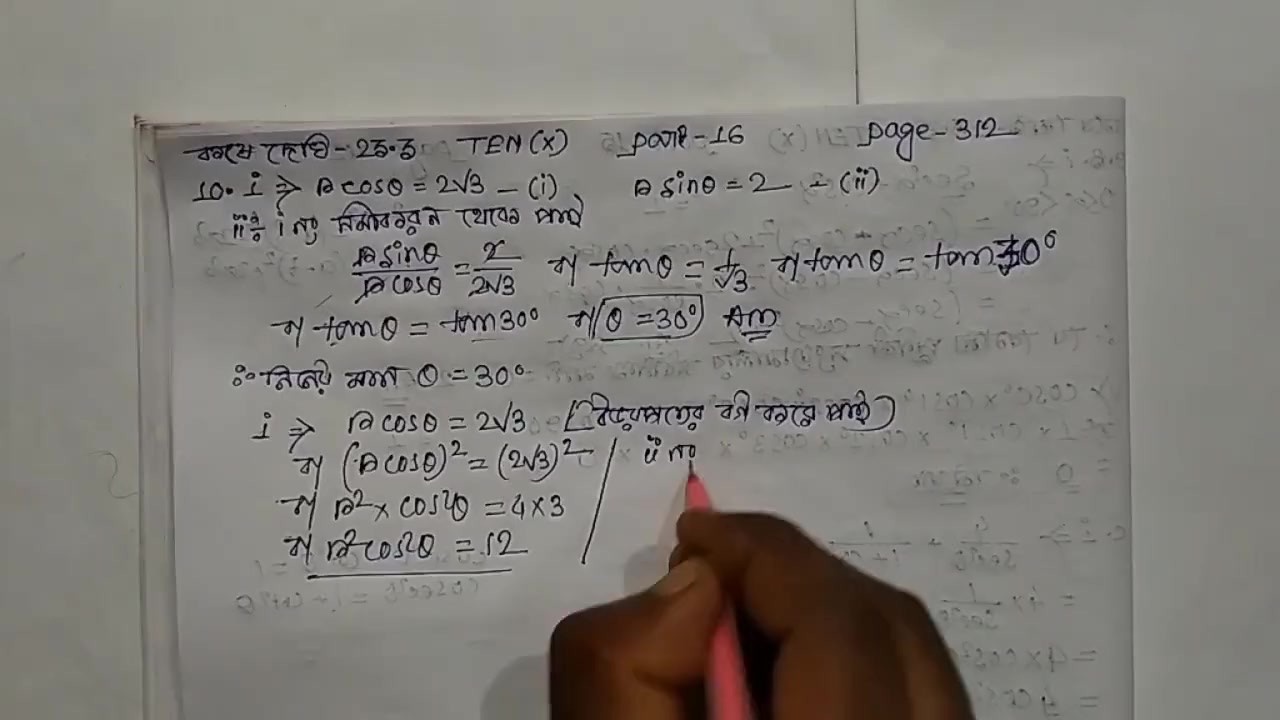 কষে দেখি-23.3 TEN(X) part-16 page-312
10. i ⇒ r cosθ = 2√3 - (i) r sinθ = 2 - (ii)
ii ÷ i নং সমীকরন থেকে পাই
r sinθ / r cosθ = 2 / 2√3 বা tanθ = 1/√3 বা tanθ = tan30°
বা tanθ = tan30° বা θ = 30° Ans
∴ নির্ণেয় মান θ = 30°
i ⇒ r cosθ = 2√3 [উভয়পক্ষের বর্গ করে পাই]
বা (r cosθ)² = (2√3)² ii নং
বা r² × cos²θ = 4×3
বা r²cos²θ = 12